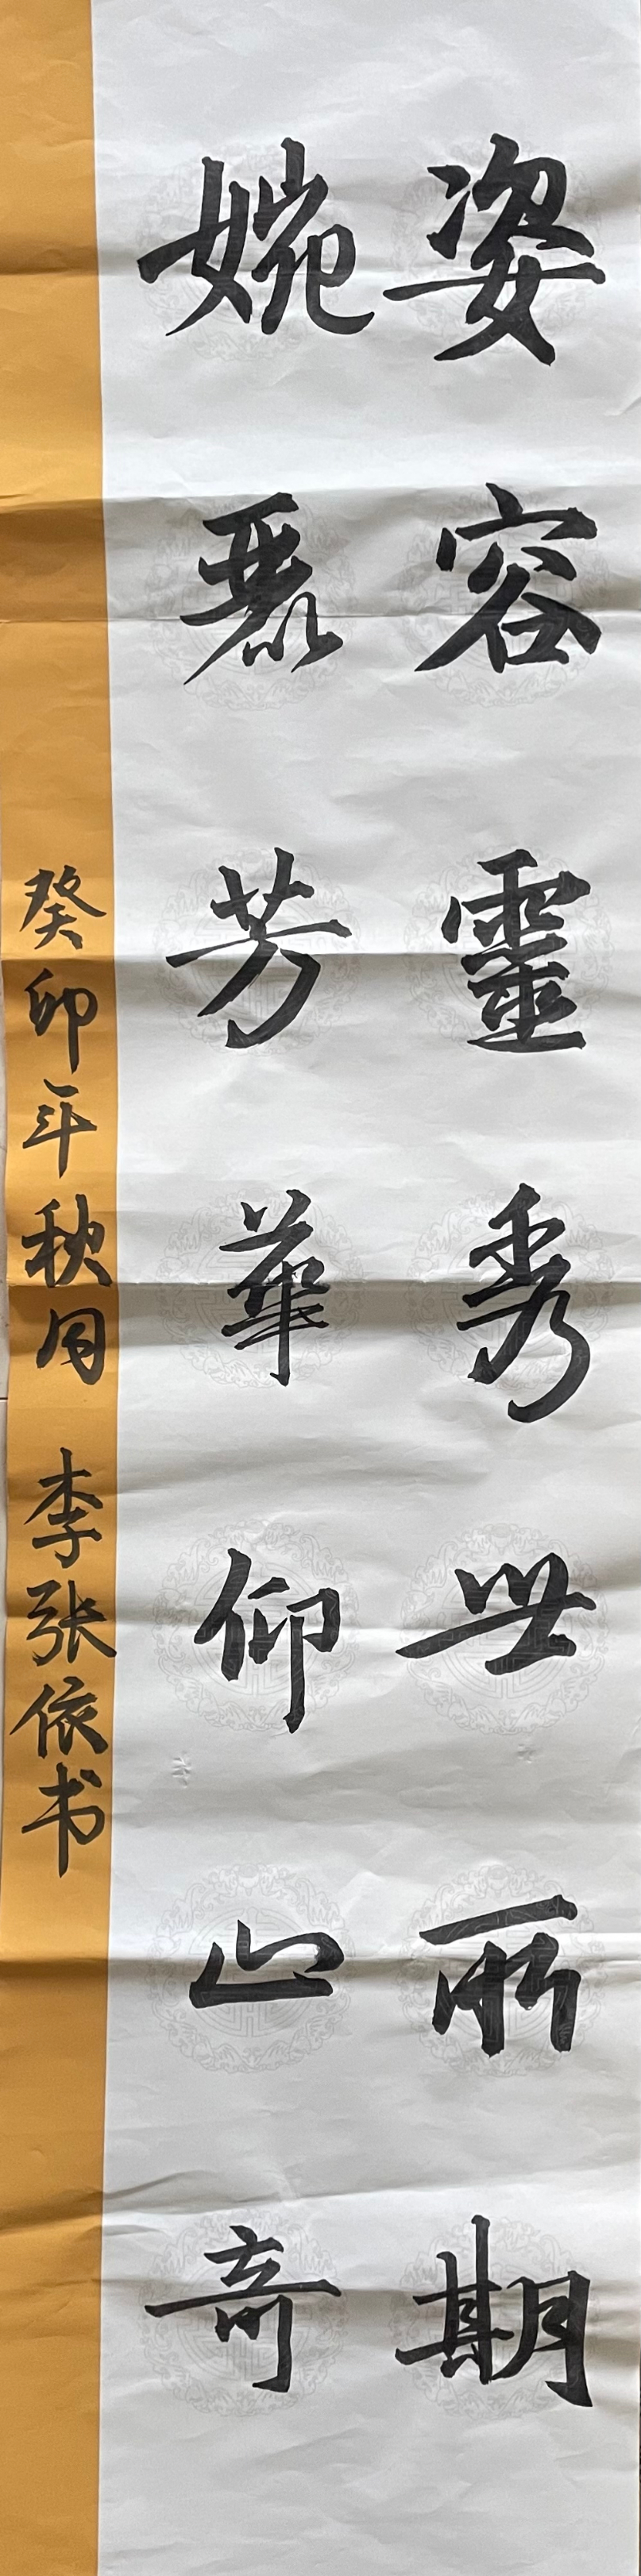 姿容靈秀世所期
婉麗芳華仰山奇
癸卯年秋月 李张依书